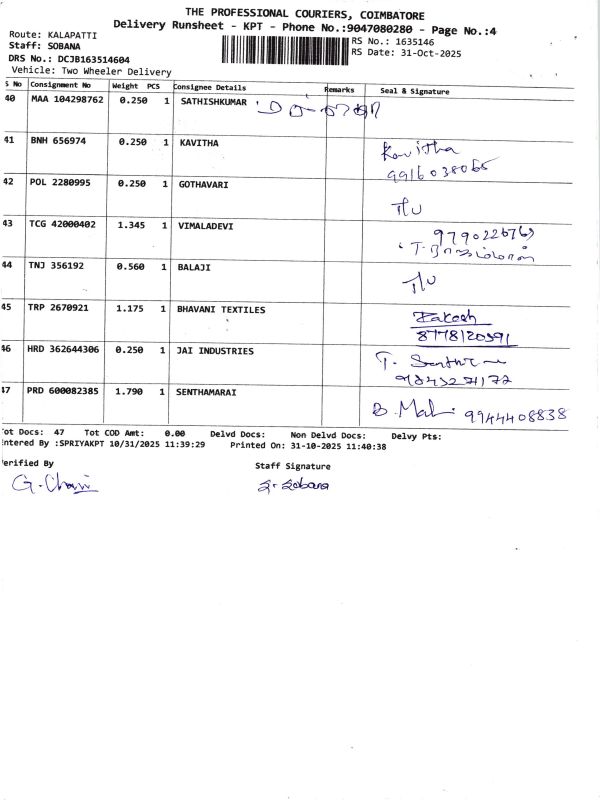 THE PROFESSIONAL COURIERS, COIMBATORE
Delivery Runsheet - KPT - Phone No.:9047080280 - Page No.:4
Route: KALAPATTI
Staff: SOBANA
RS No.: 1635146
DRS No.: DCJB163514604
RS Date: 31-Oct-2025
Vehicle: Two Wheeler Delivery
S No Consignment No Weight PCS Consignee Details Remarks Seal & Signature
40 MAA 104298762 0.250 1 SATHISHKUMAR
41 BNH 656974 0.250 1 KAVITHA Kavitha
9916038065
42 POL 2280995 0.250 1 GOTHAVARI
43 TCG 42000402 1.345 1 VIMALADEVI
44 TNJ 356192 0.560 1 BALAJI
45 TRP 2670921 1.175 1 BHAVANI TEXTILES
8778120391
46 HRD 362644306 0.250 1 JAI INDUSTRIES
47 PRD 600082385 1.790 1 SENTHAMARAI 9944408838
Tot Docs: 47 Tot COD Amt: 0.00 Delvd Docs: Non Delvd Docs: Delvy Pts:
Entered By :SPRIYAKPT 10/31/2025 11:39:29 Printed On: 31-10-2025 11:40:38
Verified By Staff Signature
S. Sobana